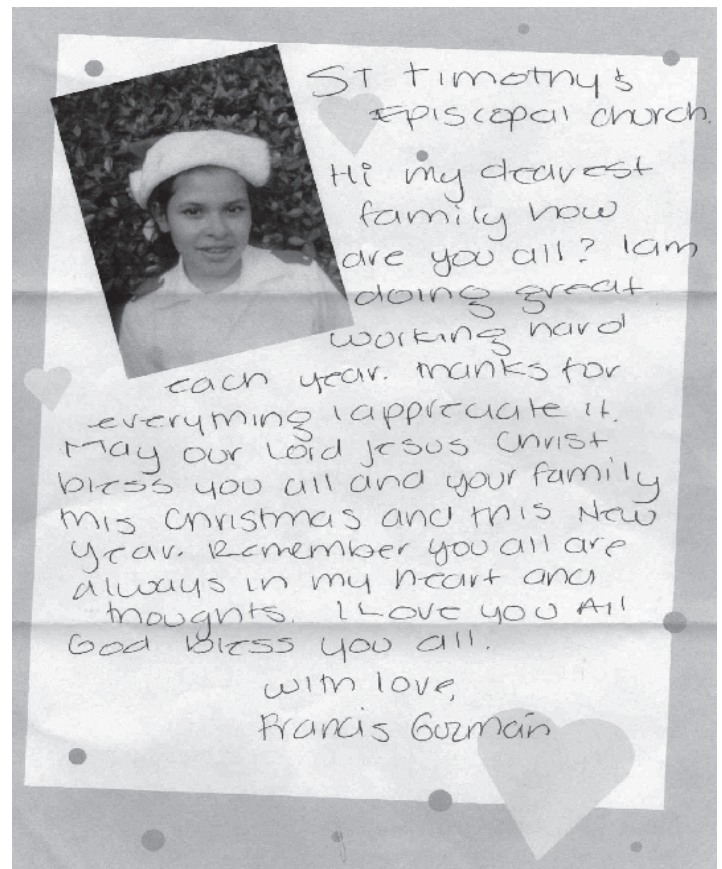 ST Timothy's
Episcopal church.
Hi my dearest
family how
are you all? I am
doing great
working hard
each year. thanks for
everything I appreciate it.
May our Lord Jesus Christ
bless you all and your family
this Christmas and this New
Year. Remember you all are
always in my heart and
thoughts. I Love you All
God bless you all.
with love,
Francis Guzmán